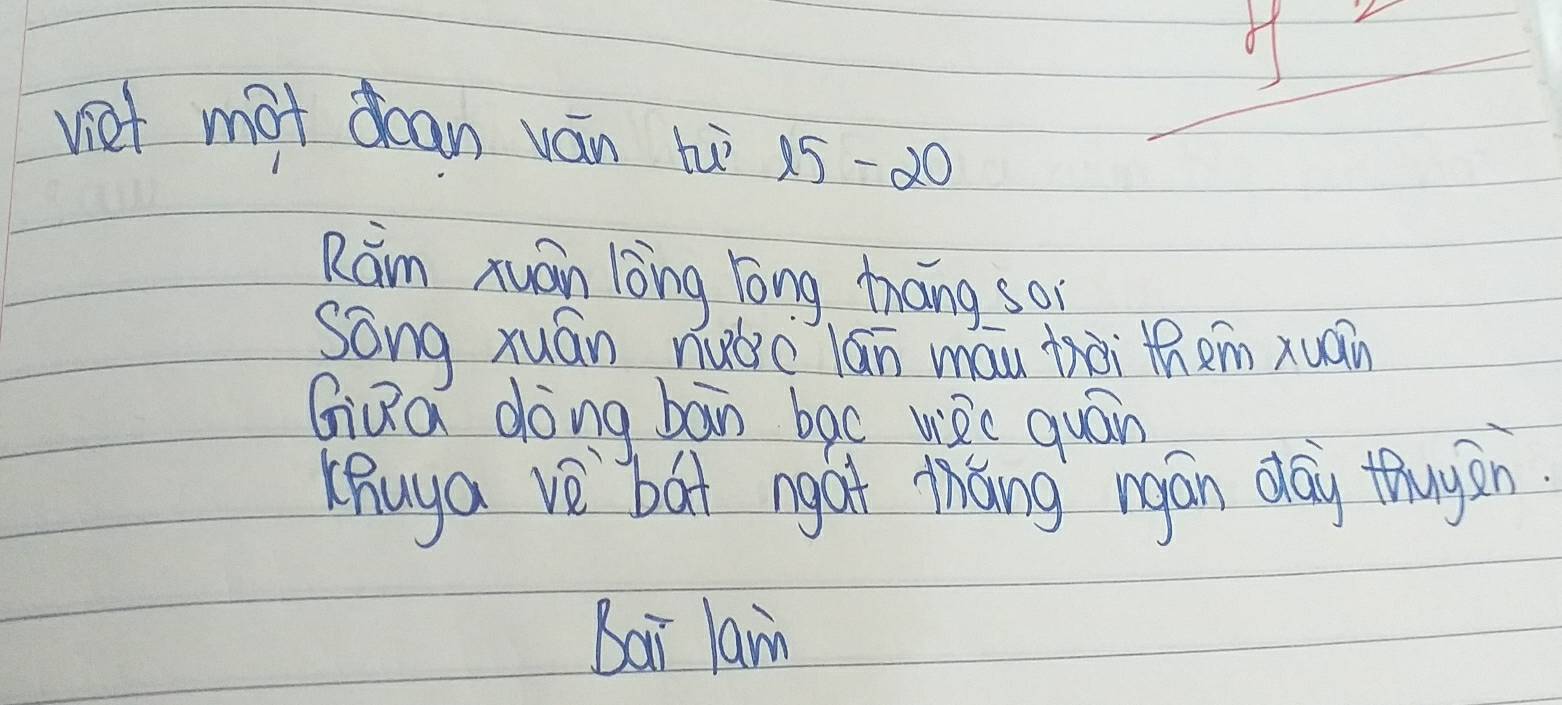 Viết một đoạn văn từ 15-20
Rằm xuân lồng lộng trăng soi
Sông xuân nước lẫn màu trời thêm xuân
Giữa dòng bàn bạc việc quân
Khuya về bát ngát trăng ngân đầy thuyền.
Bài làm